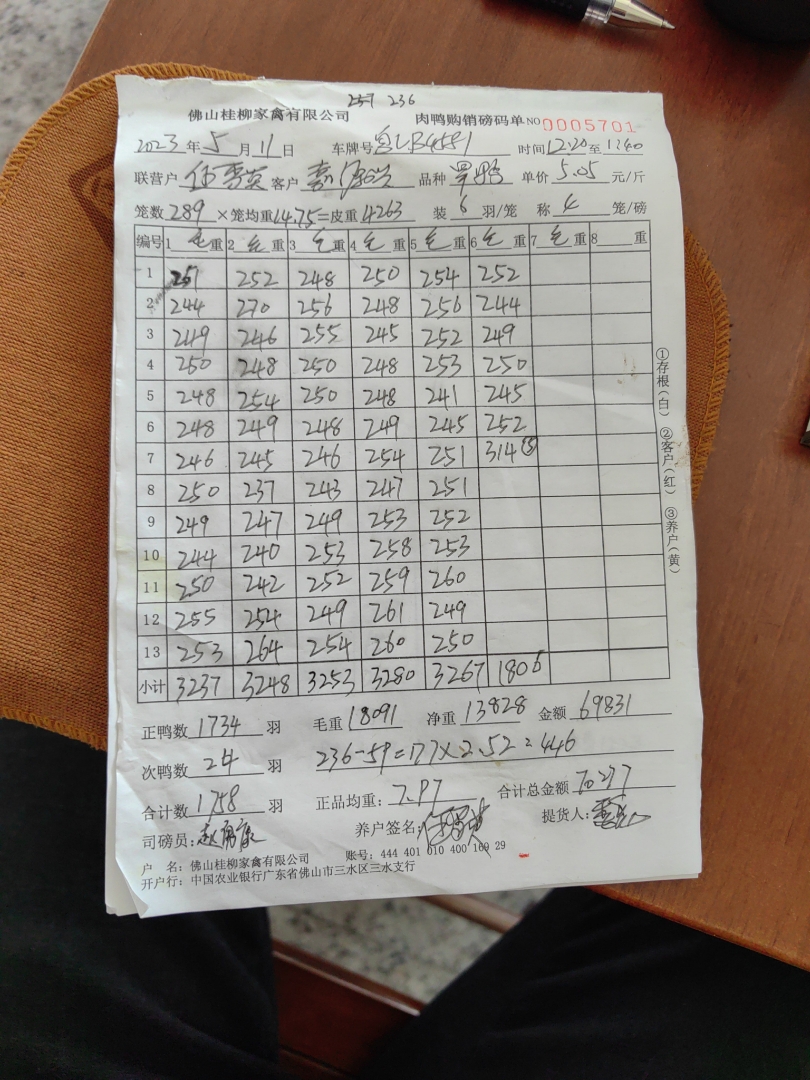 257 236
佛山桂柳家禽有限公司 肉鸭购销磅码单 NO 0005701
2023年5月11日 车牌号 LB4581 时间12.20至1340
联营户 客户 品种 单价5.05元/斤
笼数289×笼均重14.75=皮重4263 装6羽/笼 称4笼/磅
编号 1毛重 2毛重 3毛重 4毛重 5毛重 6毛重 7毛重 8重
1 251 252 248 250 254 252
2 244 270 256 248 256 244
3 249 246 255 245 252 249
4 250 248 250 248 253 250
5 248 254 250 248 241 245
6 248 249 248 249 245 252
7 246 245 246 254 251 314⑤
8 250 237 243 247 251
9 249 247 249 253 252
10 244 240 253 258 253
11 250 242 252 259 260
12 255 254 249 261 249
13 253 264 254 260 250
小计 3237 3248 3253 3280 3267 1806
正鸭数1734羽 毛重18091 净重13828 金额69831
次鸭数24羽 236-59=177×2.52=446
合计数1758羽 正品均重:7.97 合计总金额70277
司磅员: 养户签名: 提货人:
户 名:佛山桂柳家禽有限公司 账号:444 401 010 400 169 29
开户行:中国农业银行广东省佛山市三水区三水支行
①存根(白) ②客户(红) ③养户(黄)